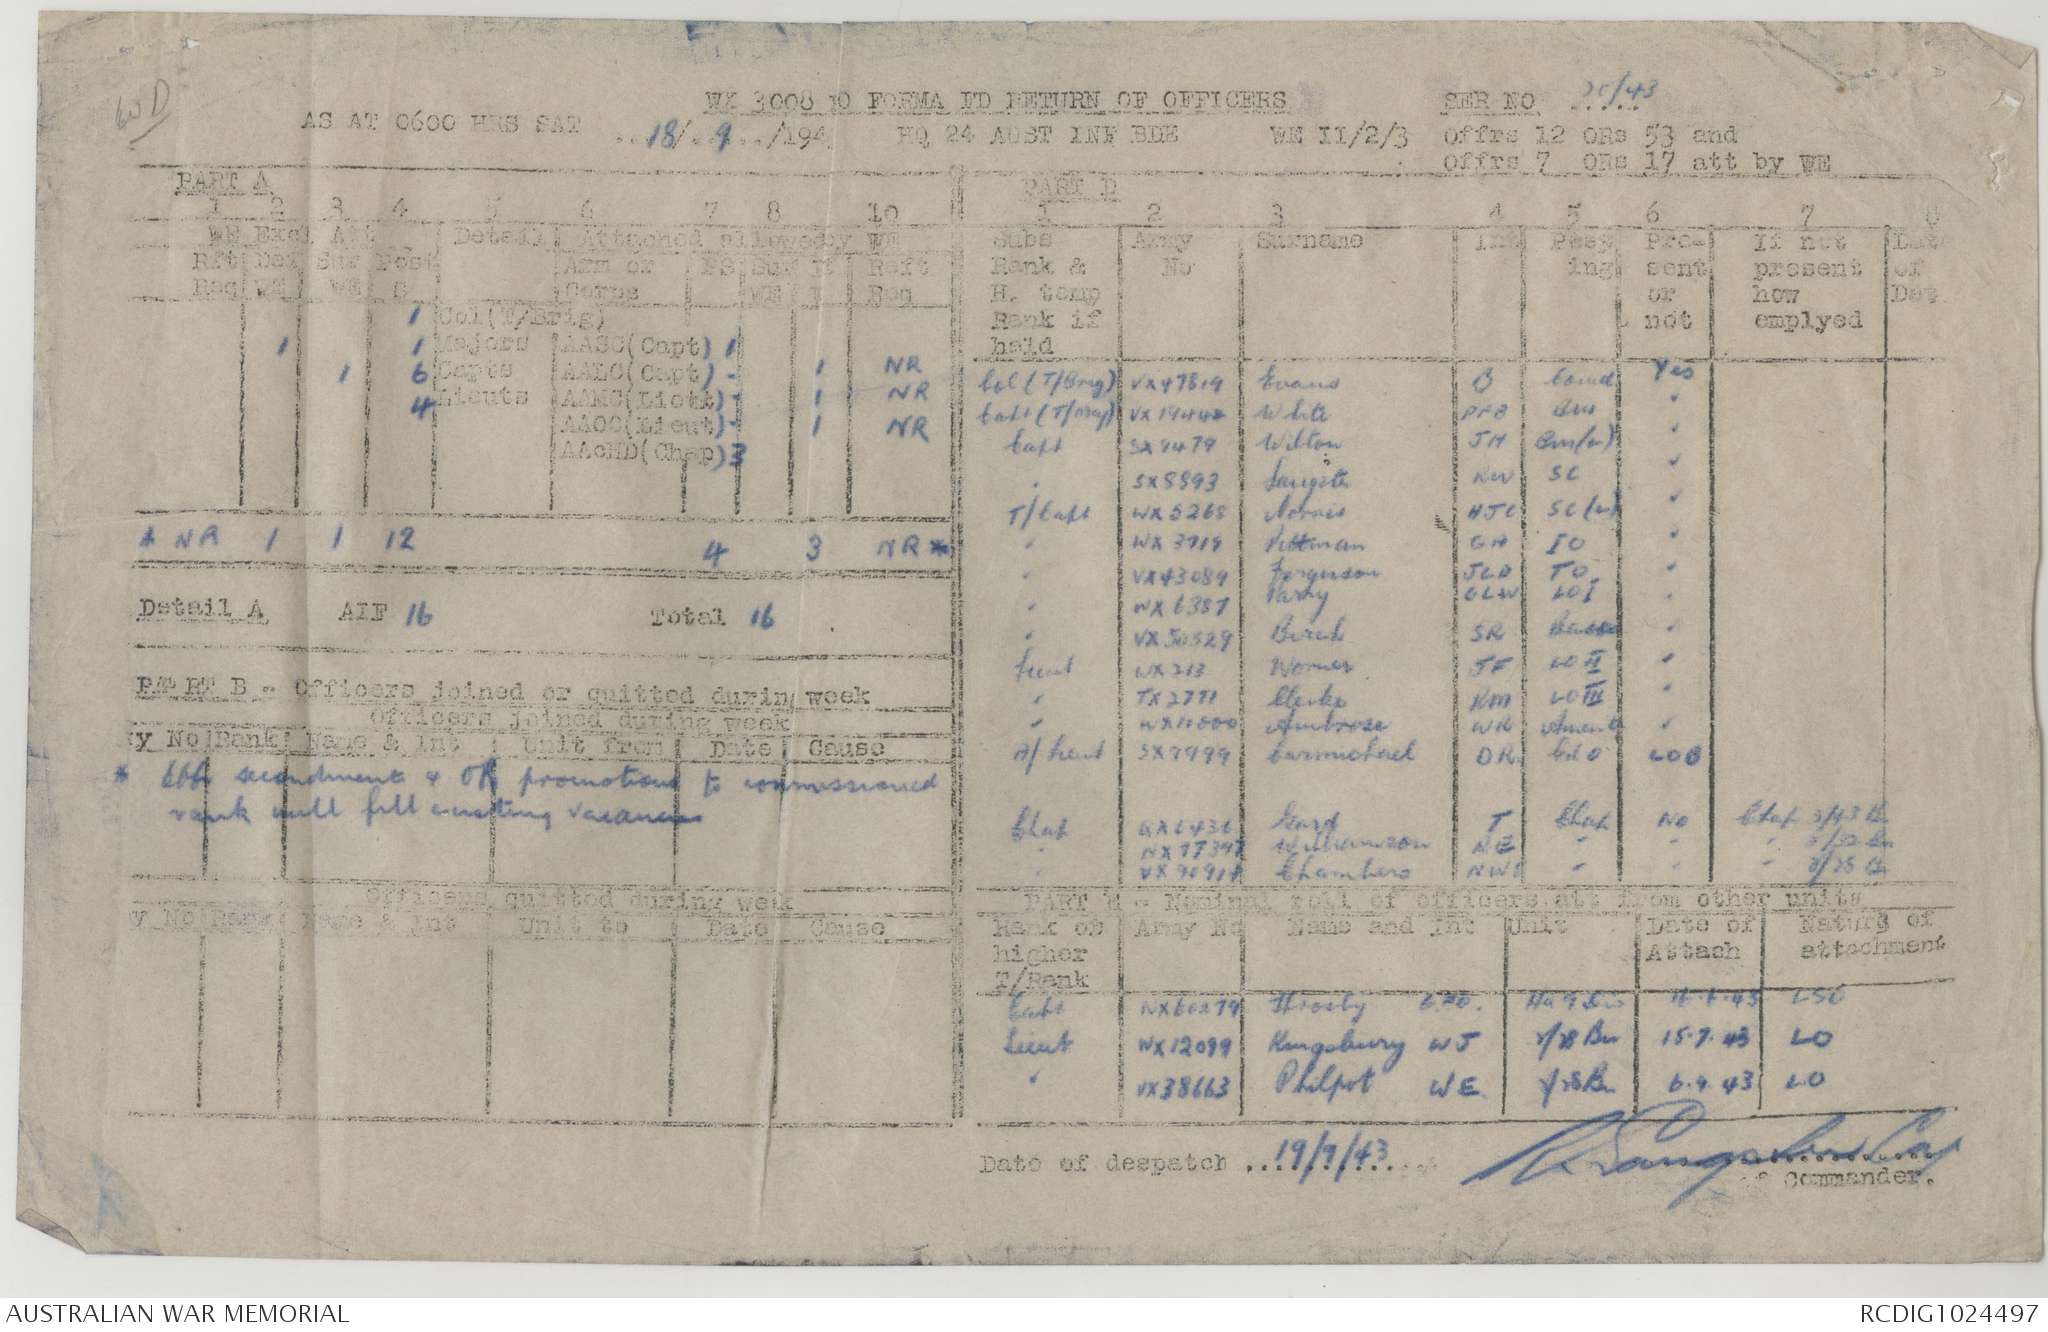 WD
WX 3008 10 FORMA FD RETURN OF OFFICERS SER NO /43
AS AT 0600 HRS SAT 18/9/194 HQ 24 AUST INF BDE WE II/2/3 Offrs 12 ORs 53 and
Offrs 7 ORs 17 att by WE
PART A
1 2 3 4 5 6 7 8 10
WE Excl Att Detail Attached allowed by WE
Rft Def Sur Post Arm or PS Sur Rft
Req WE WE s Corps WE Req
1 Col(T/Brig)
1 1 Majors AASC(Capt) 1
1 6 Capts AALC(Capt) - 1 NR
4 Lieuts - 1 NR
AAOC(Lieut) - 1 NR
AAcHD(Chap) 3
* NR 1 1 12 4 3 NR *
Detail A AIF 16 Total 16
PART B - Officers joined or quitted during week
Officers joined during week
y No Rank Name & Int Unit from Date Cause
* secondment & OR promotions to commissioned
rank will fill existing vacancies
Officers quitted during week
y No Rank Name & Int Unit to Date Cause
PART D
1 2 3 4 5 6 7 8
Subs Army Surname Int Posy Pre- If not Date
Rank & No ing sent present of
H. temp or how Det
Rank if not emplyed
held
Col (T/Brig) VX47819 Evans B Comd Yes
Capt (T/Maj) White BM "
Capt SX9479 Wilton JH BM(L) "
" SX8893 Sangster RW SC "
T/Capt WX5268 Norris HJC SC(L) "
" WX3919 Pittman GH IO "
" VX43089 Ferguson JCD TO "
" WX6387 Parry GLW LO I "
" VX50329 Birch SR "
Lieut WX213 Worner JF LO II "
" TX2771 Clerke KM LO III "
" Ambrose WR "
A/Lieut SX9999 Carmichael DR LOB
Chap QX6436 T Chap No Chap 2/43 Bn
" Williamson " " " 2/32 Bn
" Chambers " " " 2/28 Bn
PART E - Nominal roll of officers att from other units
Rank or Army No Name and Int Unit Date of Nature of
higher Attach attachment
T/Rank
Capt LSO
Lieut WX12099 Kingsbury WJ 2/28 Bn 15.7.43 LO
" VX38663 Philpot WE 2/28 Bn 6.9.43 LO
Date of despatch 19/9/43
Commander.
AUSTRALIAN WAR MEMORIAL RCDIG1024497